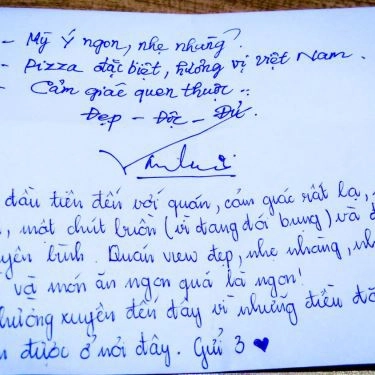 - Mỳ Ý ngon, nhẹ nhàng.
- Pizza đặc biệt, hương vị Việt Nam.
- Cảm giác quen thuộc..
Đẹp - Độc - Đủ
đầu tiên đến với quán, cảm giác rất lạ,
, một chút buồn (vì đang đói bụng) và
yên bình. Quán view đẹp, nhẹ nhàng,
và món ăn ngon quá là ngon!
thường xuyên đến đây vì những điều
được ở nơi đây. Gửi 3 ♥